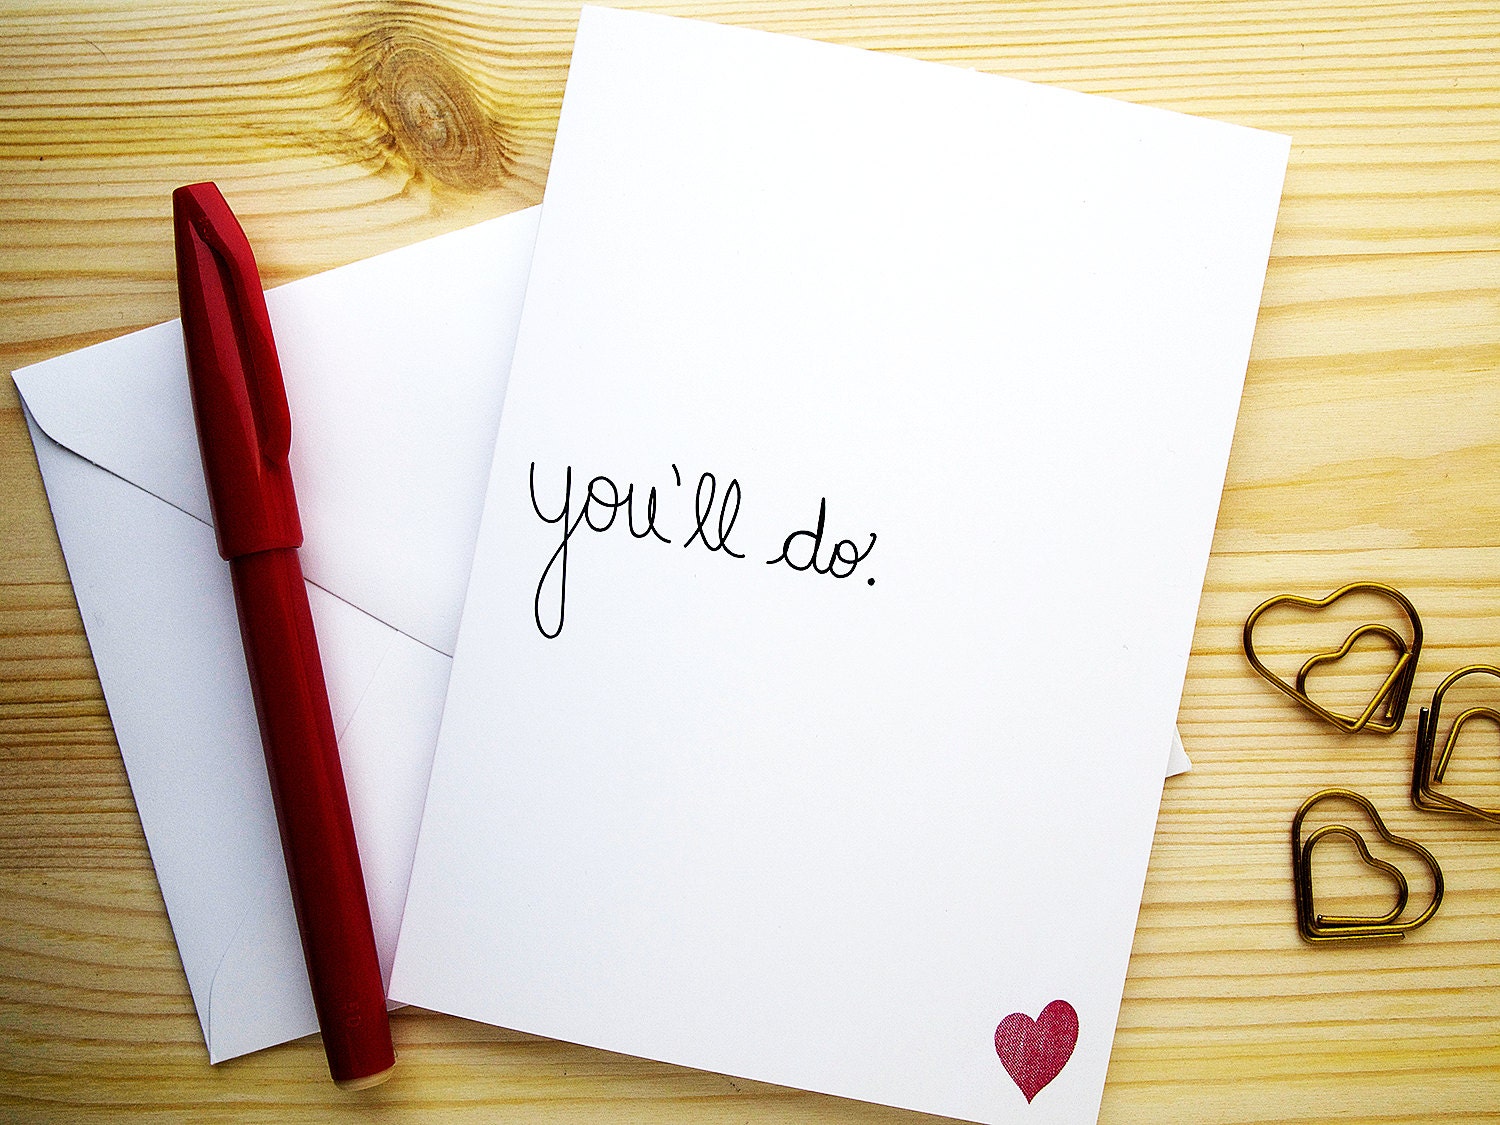 you'll do.